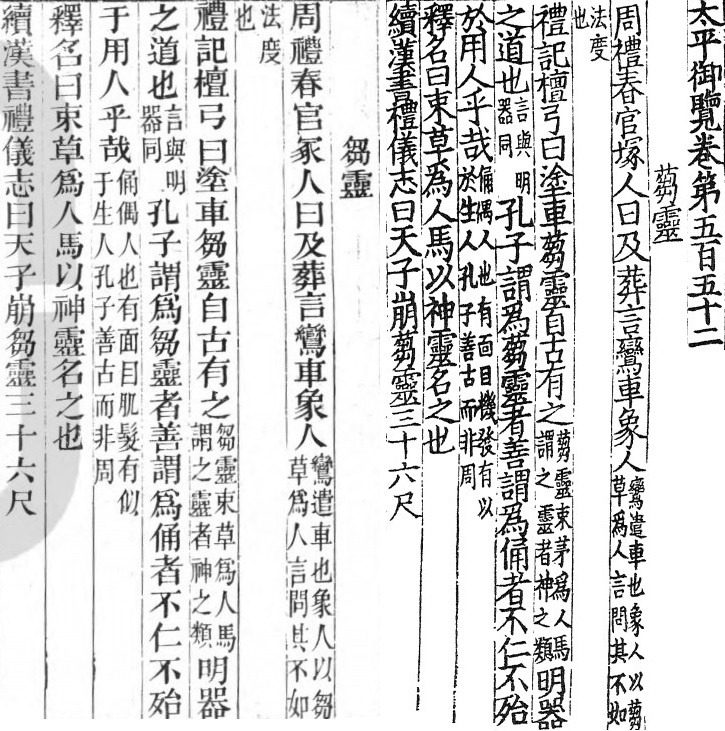 太平御覽卷第五百五十二
蒭靈
周禮春官塚人曰及葬言鸞車象人鸞遣車也象人以蒭草爲人言問其不如
法度也
禮記檀弓曰塗車蒭靈自古有之蒭靈束茅爲人馬謂之靈者神之類明器
之道也言與明器同孔子謂爲蒭靈者善謂爲俑者不仁不殆
於用人乎哉俑偶人也有面目機發有以於生人孔子善古而非周
釋名曰束草為人馬以神靈名之也
續漢書禮儀志曰天子崩蒭靈三十六尺
芻靈
周禮春官冢人曰及葬言鸞車象人鸞遣車也象人以芻草爲人言問其不如
法度也
禮記檀弓曰塗車芻靈自古有之芻靈束草爲人馬謂之靈者神之類明器
之道也言與明器同孔子謂爲芻靈者善謂爲俑者不仁不殆
于用人乎哉俑偶人也有面目肌髮有似于生人孔子善古而非周
釋名曰束草爲人馬以神靈名之也
續漢書禮儀志曰天子崩芻靈三十六尺